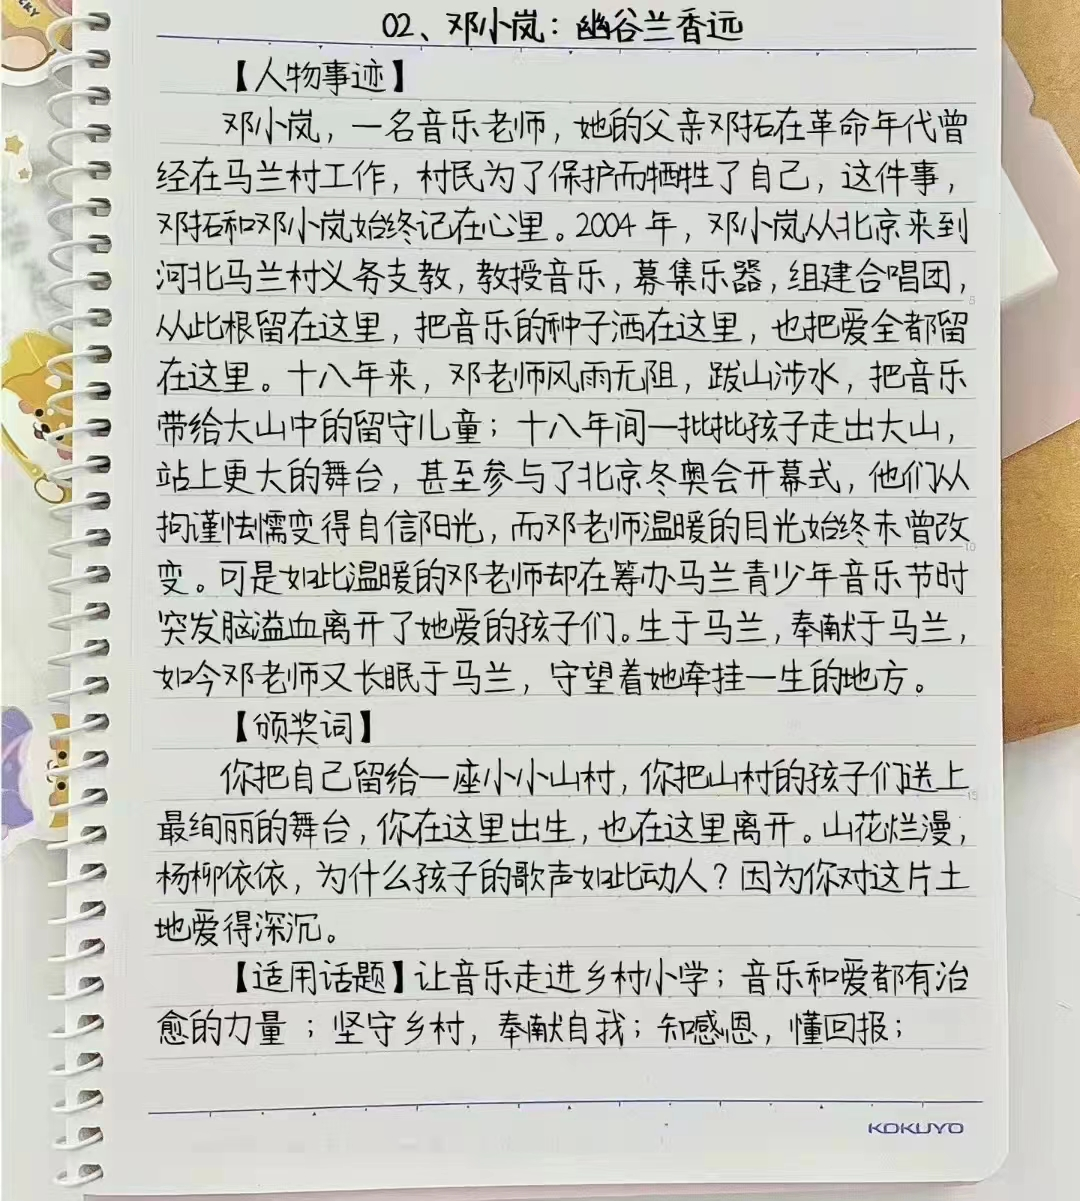 02、邓小岚：幽谷兰香远
【人物事迹】
邓小岚，一名音乐老师，她的父亲邓拓在革命年代曾
经在马兰村工作，村民为了保护而牺牲了自己，这件事，
邓拓和邓小岚始终记在心里。2004年，邓小岚从北京来到
河北马兰村义务支教，教授音乐，募集乐器，组建合唱团，
从此根留在这里，把音乐的种子洒在这里，也把爱全都留
在这里。十八年来，邓老师风雨无阻，跋山涉水，把音乐
带给大山中的留守儿童；十八年间一批批孩子走出大山，
站上更大的舞台，甚至参与了北京冬奥会开幕式，他们从
拘谨怯懦变得自信阳光，而邓老师温暖的目光始终未曾改
变。可是如此温暖的邓老师却在筹办马兰青少年音乐节时
突发脑溢血离开了她爱的孩子们。生于马兰，奉献于马兰，
如今邓老师又长眠于马兰，守望着她牵挂一生的地方。
【颁奖词】
你把自己留给一座小小山村，你把山村的孩子们送上
最绚丽的舞台，你在这里出生，也在这里离开。山花烂漫，
杨柳依依，为什么孩子的歌声如此动人？因为你对这片土
地爱得深沉。
【适用话题】让音乐走进乡村小学；音乐和爱都有治
愈的力量；坚守乡村，奉献自我；知感恩，懂回报；
5
10
15
KOKUYO